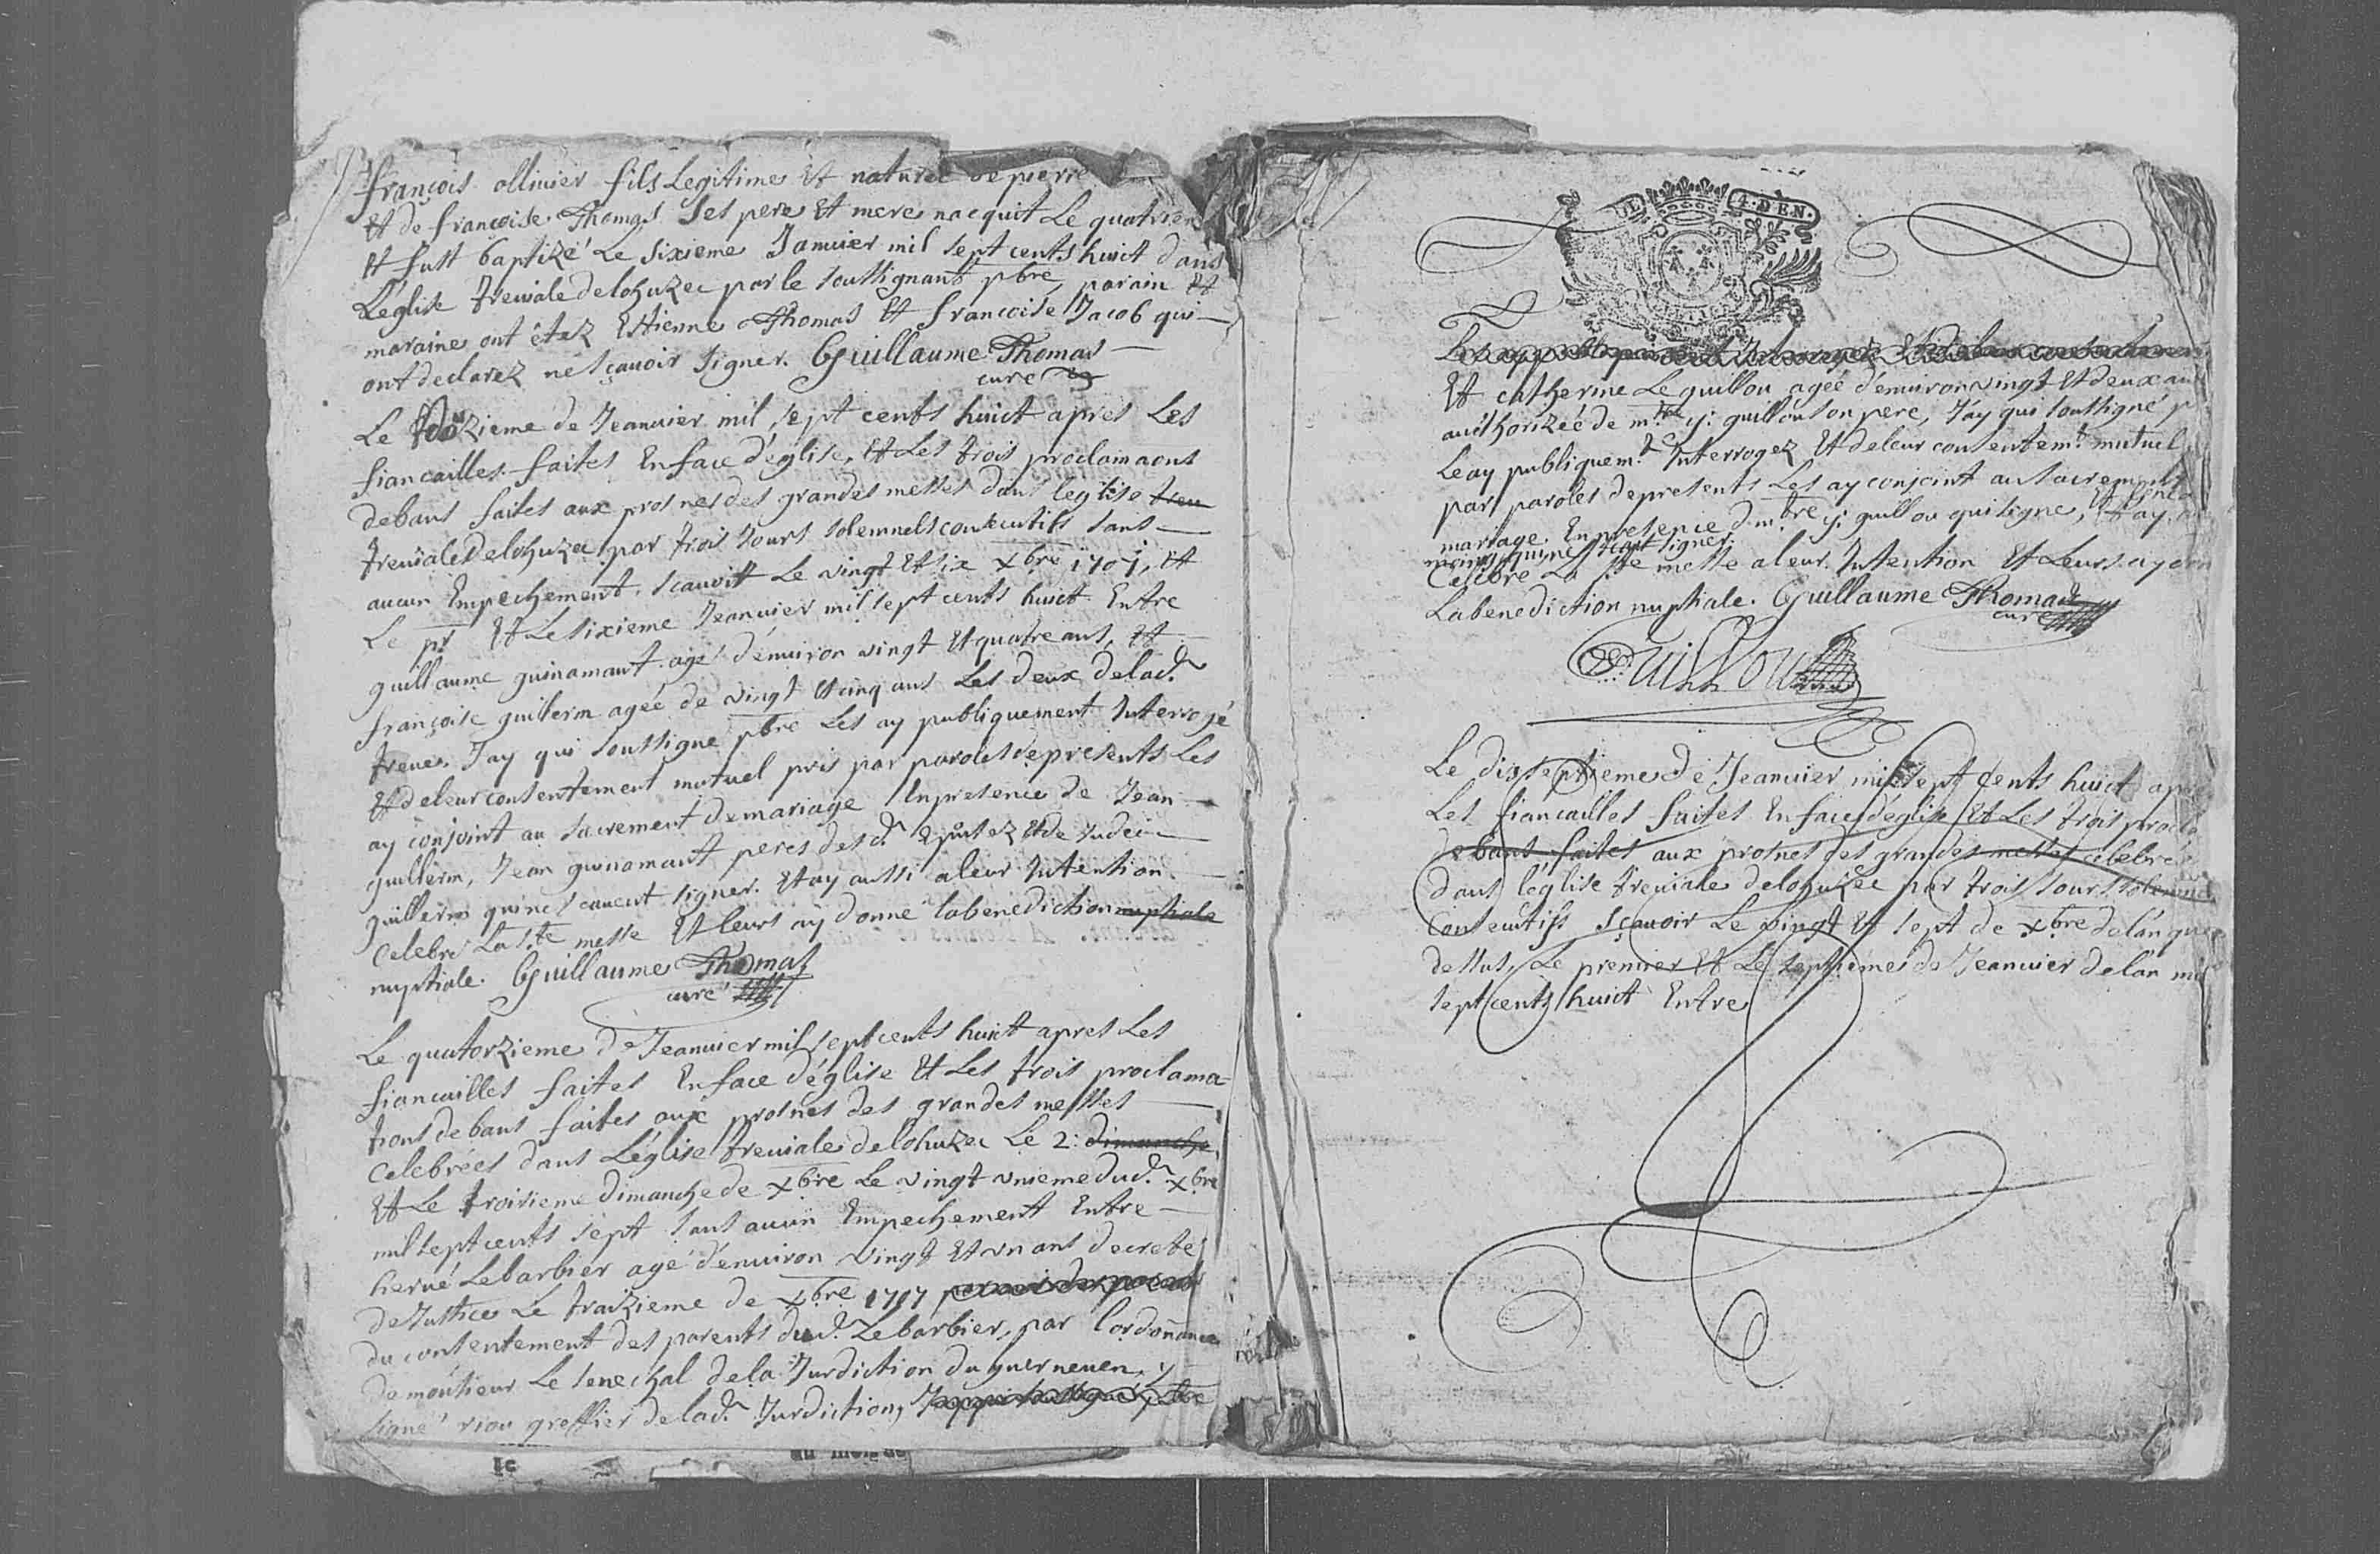 françois ollivier fils Legitime Et naturel de pierre
Et de françoise Thomas Ses pere Et mere nacquit Le quatrien
Et futt baptizé Le sixieme Januier mil sept cents huict dans
L'eglise treuiale delohuzec par le soussignant pbre, parain Et
maraine ont étez Estienne Thomas Et francoise Jacob qui
ont declarez ne sçauoir signer. Guillaume Thomas
curé
Le douzieme de Jeanuier mil sept cents huict apres Les
fiancailles faites En face d'église, Et Les trois proclamaons
debans faites aux prosnes des grandes messes dans leglise treu
treuiale delohuzec par trois Jours solemnels consecutifs sans
aucun Empechement, scauoitt Le vingt Et six xbre 1707, Et
Le pr Et Le sixieme Jeanuier mil sept cents huict Entre
guillaume guinamant agé d'enuiron vingt Et quatre ans, Et
françoise guillerm agée de vingt Et cinq ans Les deux delad.
treue. J'ay qui soussigne pbre Les ay publiquement Interrogé
Et deleur consentement mutuel pris par paroles depresents Les
ay conjoint au sacrement demariage Enpresence de Jean
guillerm, Jean guinamant peres desd. Epoutez Et de Judec
guillerm quine scauent signer. Et ay aussi aleur Intention
Celebré La ste messe Et leurs ay donné labenediction nuptiale
nuptiale. Guillaume Thomas
curé
Le quatorzieme de Jeanuier mil sept cents huict apres Les
fiancailles faites En face d'église Et Les trois proclama
tions debans faites aux prosnes des grandes messes
Celebrées dans L'église treuiale delohuzec Le 2: dimanche
Et Le troisieme dimanche de xbre Le vingt vnieme dud. xbre
mil sept cents sept sans aucun Empechement Entre
herué Lebarbier agé d'enuiron vingt Et vn ans decreté
de Justice Le traizieme de xbre 1707
du consentement des parents dud. Lebarbier, par l'ordonance
de monsieur Le senechal dela Jurdiction du guerneuen, y
signé riou greffier delad. Jurdiction,
4.DEN.
Et catherine Le guillou agée d'enuiron vingt Et deux ans
authorizeé de mtre y: guillou son pere, J'ay qui soussigné p
Le ay publiquem.t Interrogez Et deleur consentem.t mutuel
par paroles depresents Les ay conjoint au sacrement
mariage. Enpresence de mtre y: guillou qui signe, Et ay
signer.
Celebré La ste messe aleur Intention Et Leurs ay
Labenediction nuptiale. Guillaume Thomas
curé
Guillou
Le dixseptieme de Jeanuier mil sept cents huict apre
Les fiancailles faites En face d'église Et Les trois procla
debans faites aux prosnes des grandes messes celebreé
dans leglise treuiale delohuzec par trois Jours solemne
Consecutifs sçauoir Le vingt Et sept de xbre delan que
dessus, Le premier Et Le septieme de Jeanuier delan mil
sept cents huict Entre